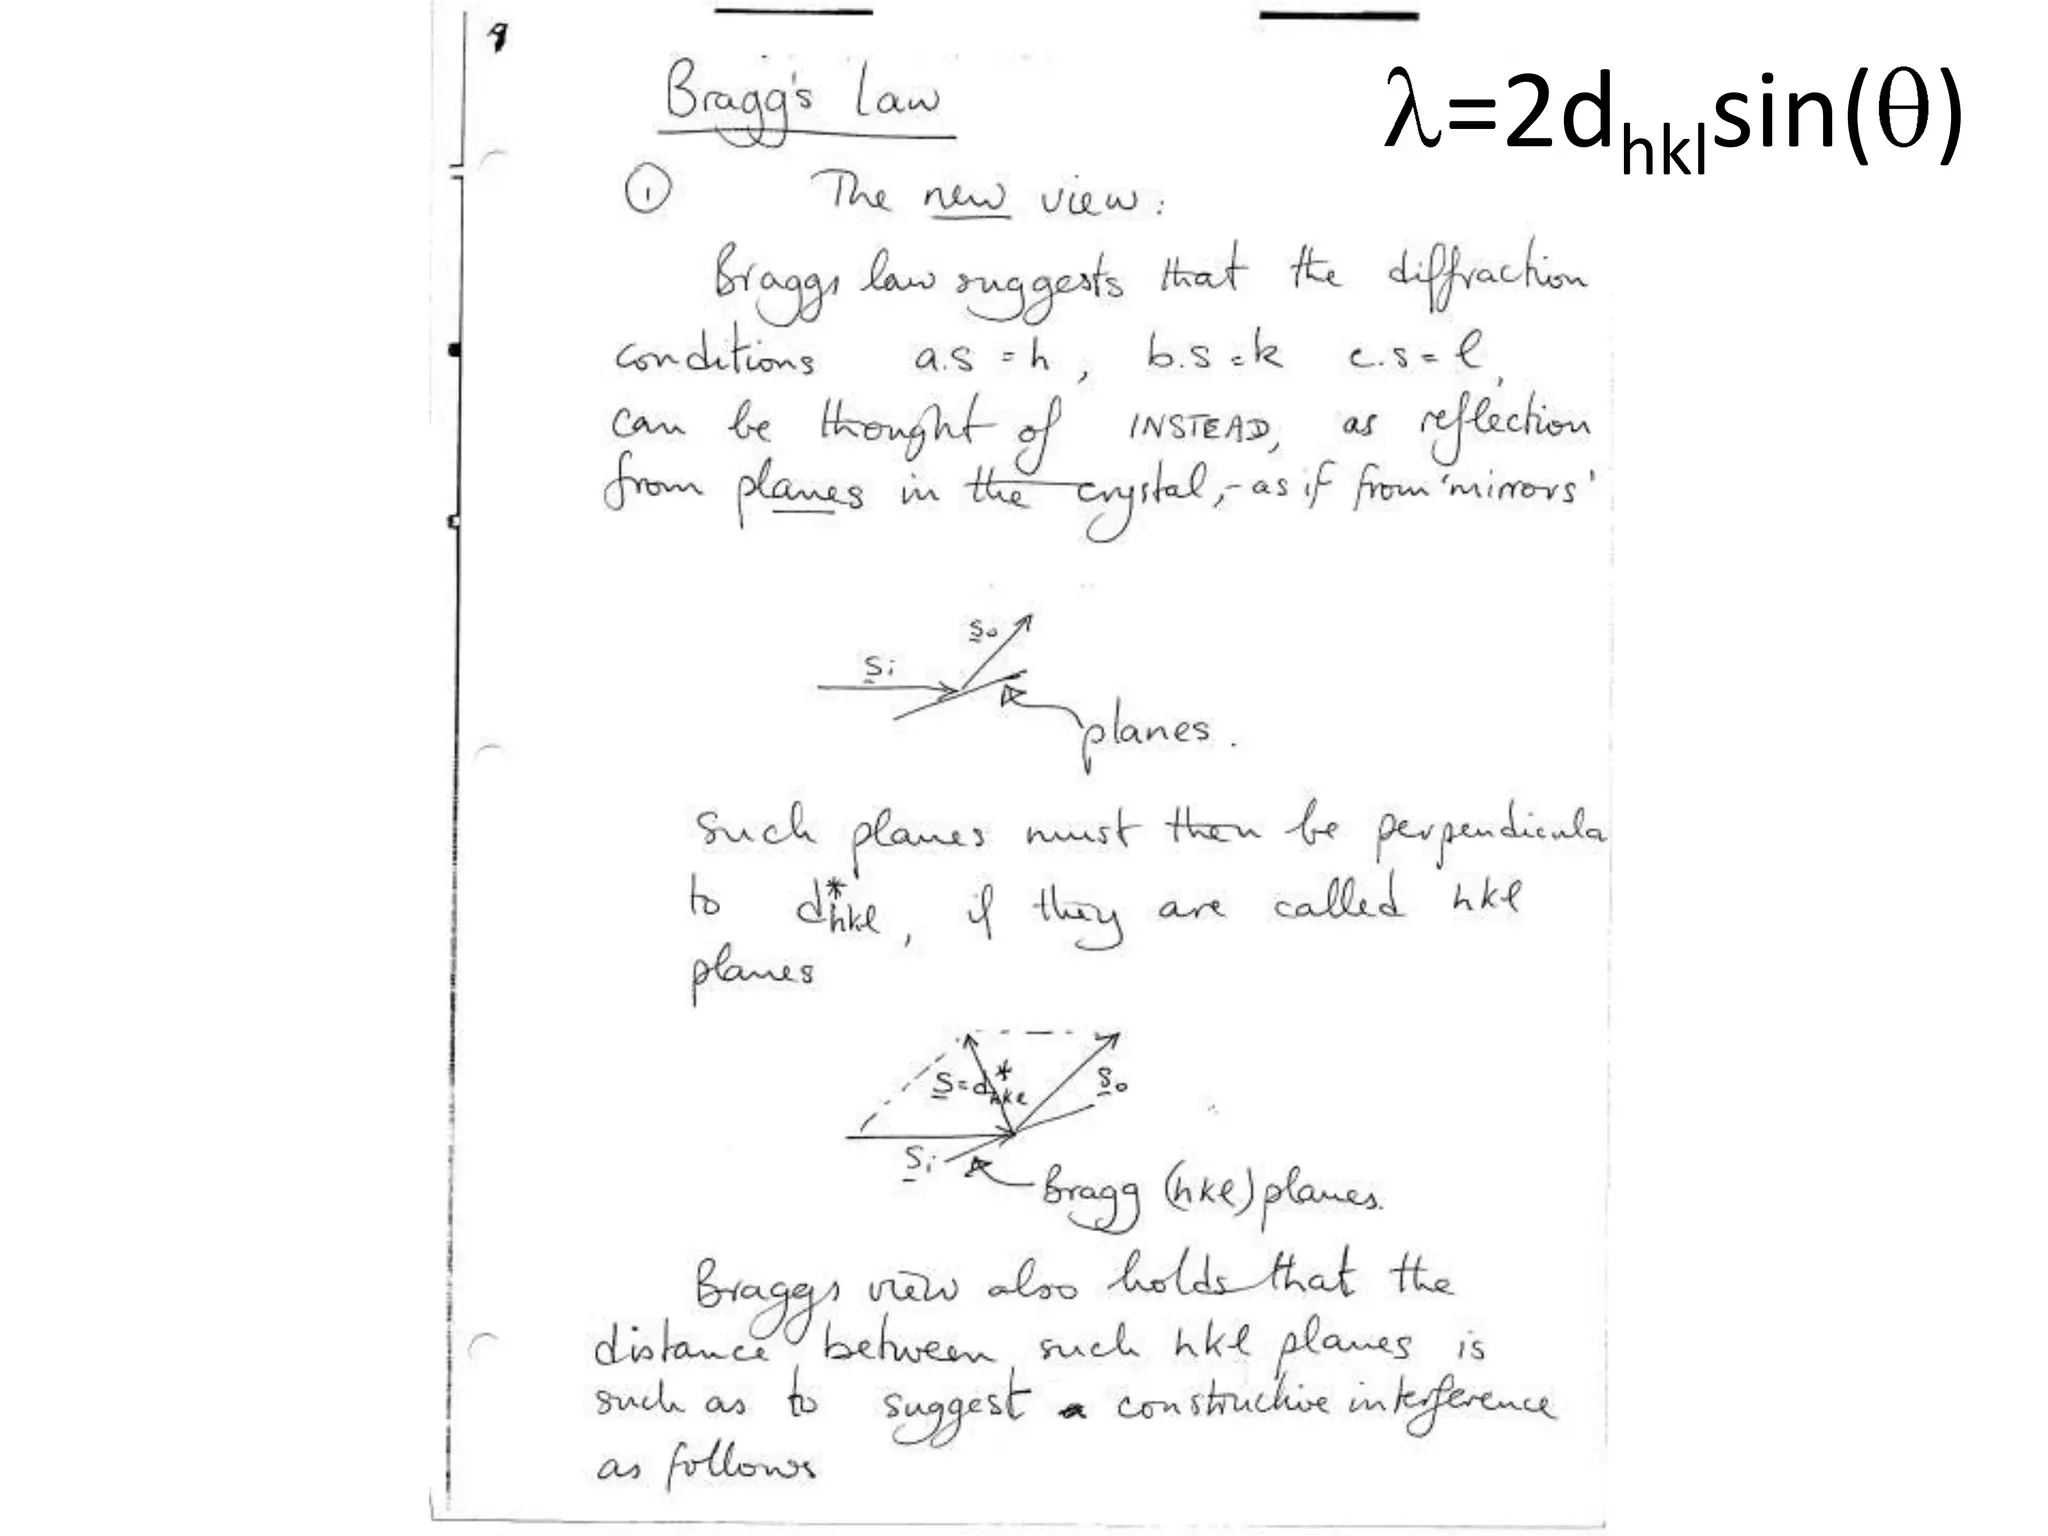 9
Bragg's Law
λ=2dhklsin(θ)
① The new view:
Braggs law suggests that the diffraction
conditions a.s = h, b.s = k c.s = l,
can be thought of INSTEAD, as reflection
from planes in the crystal, - as if from 'mirrors'
So
Si
planes.
such planes must then be perpendicula
to d*hkl, if they are called hkl
planes
S = d*hkl
So
Si
Bragg (hkl) planes.
Braggs view also holds that the
distance between such hkl planes is
such as to suggest a constructive interference
as follows